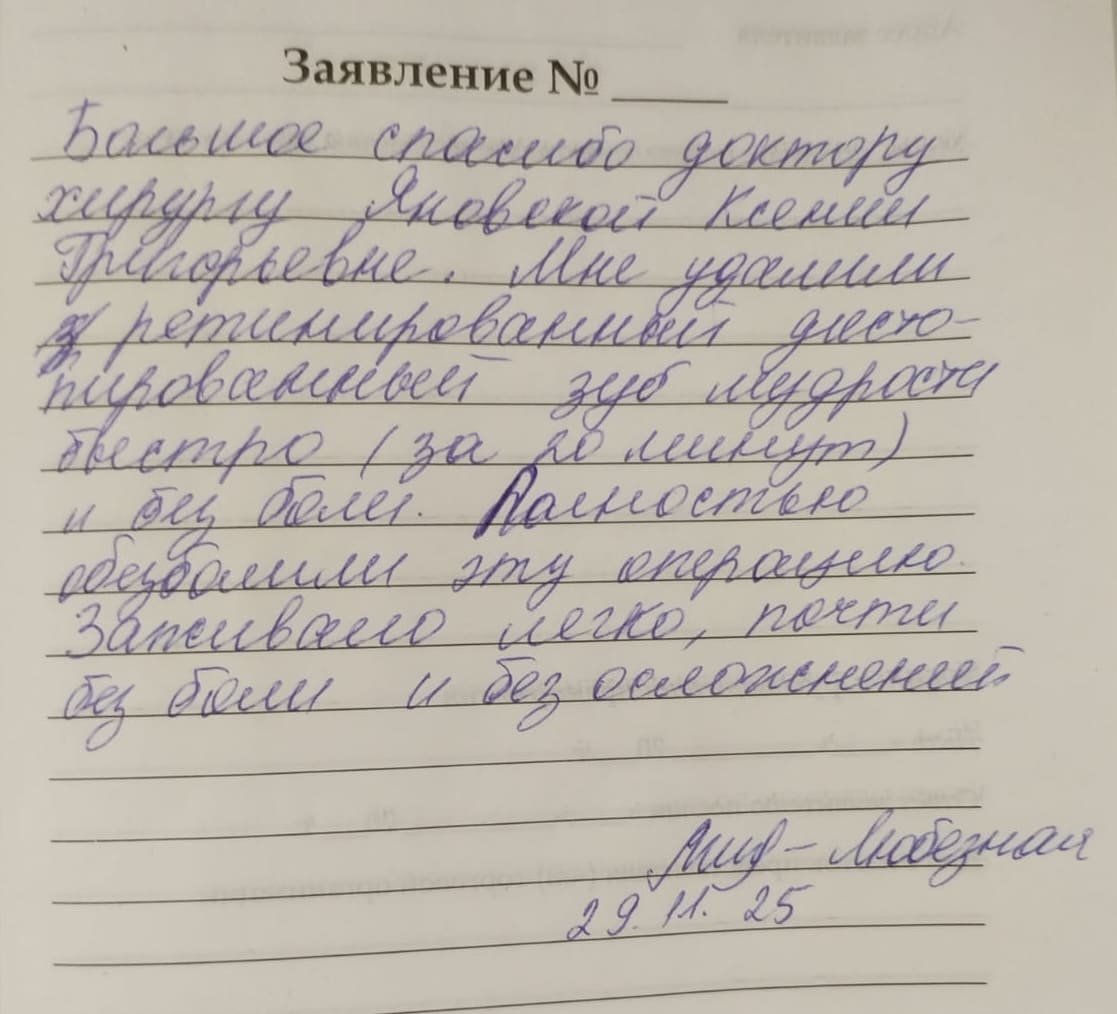 Заявление № ____
Большое спасибо доктору
хирургу Яновской Ксении
Григорьевне. Мне удалили
ретинированный дисто-
пированный зуб мудрости
быстро (за 20 минут)
и без боли. Полностью
обезболили эту операцию.
Заживало легко, почти
без боли и без осложнений
Любезная
29.11.25